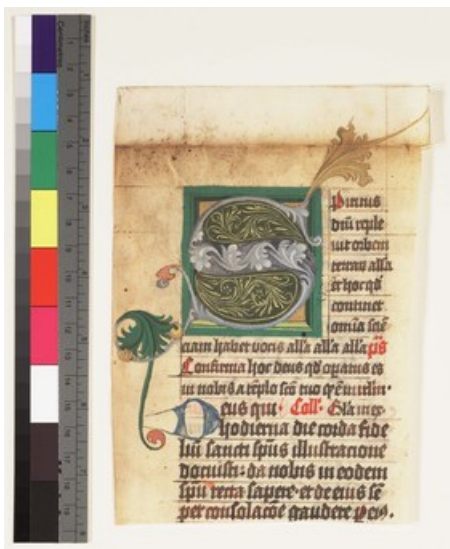 Spiritus
dñi reple
uit orbem
terraru alla
et hoc qd
continet
omĩa sciẽ
ciam habet vocis alla alla alla ps
Confirma hoc deus qd opatus es
in nobis a tẽplo sco tuo
Deus qui Coll
hodierna die corda fide
liũ sancti spũs illustracione
docuisti da nobis in eodem
spũ recta sapere et de eius sẽ
per consolacõe gaudere